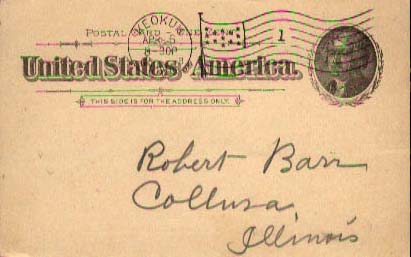 POSTAL CARD ONE CENT
KEOKUK
APR 5
30P
1
United States of America.
THIS SIDE IS FOR THE ADDRESS ONLY.
Robert Barr
Collusa
Illinois